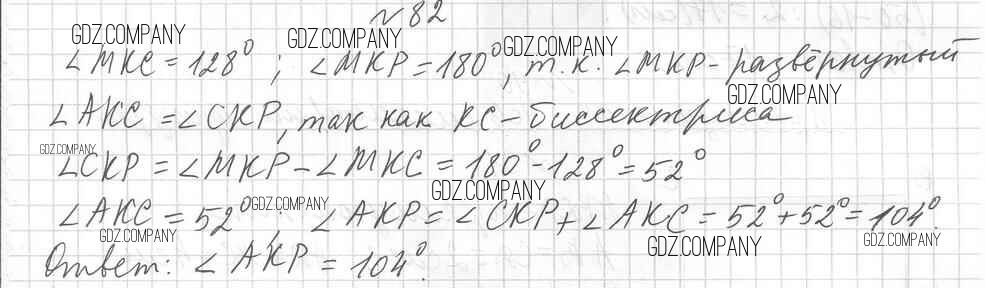 №82
GDZ.COMPANY GDZ.COMPANY GDZ.COMPANY
∠MKC = 128°; ∠MKP = 180°, т.к. ∠MKP - развёрнутый
GDZ.COMPANY
∠AKC = ∠CKP, так как KC - биссектриса
GDZ.COMPANY
∠CKP = ∠MKP - ∠MKC = 180° - 128° = 52°
GDZ.COMPANY GDZ.COMPANY
∠AKC = 52°; ∠AKP = ∠CKP + ∠AKC = 52° + 52° = 104°.
GDZ.COMPANY GDZ.COMPANY GDZ.COMPANY
Ответ: ∠AKP = 104°.